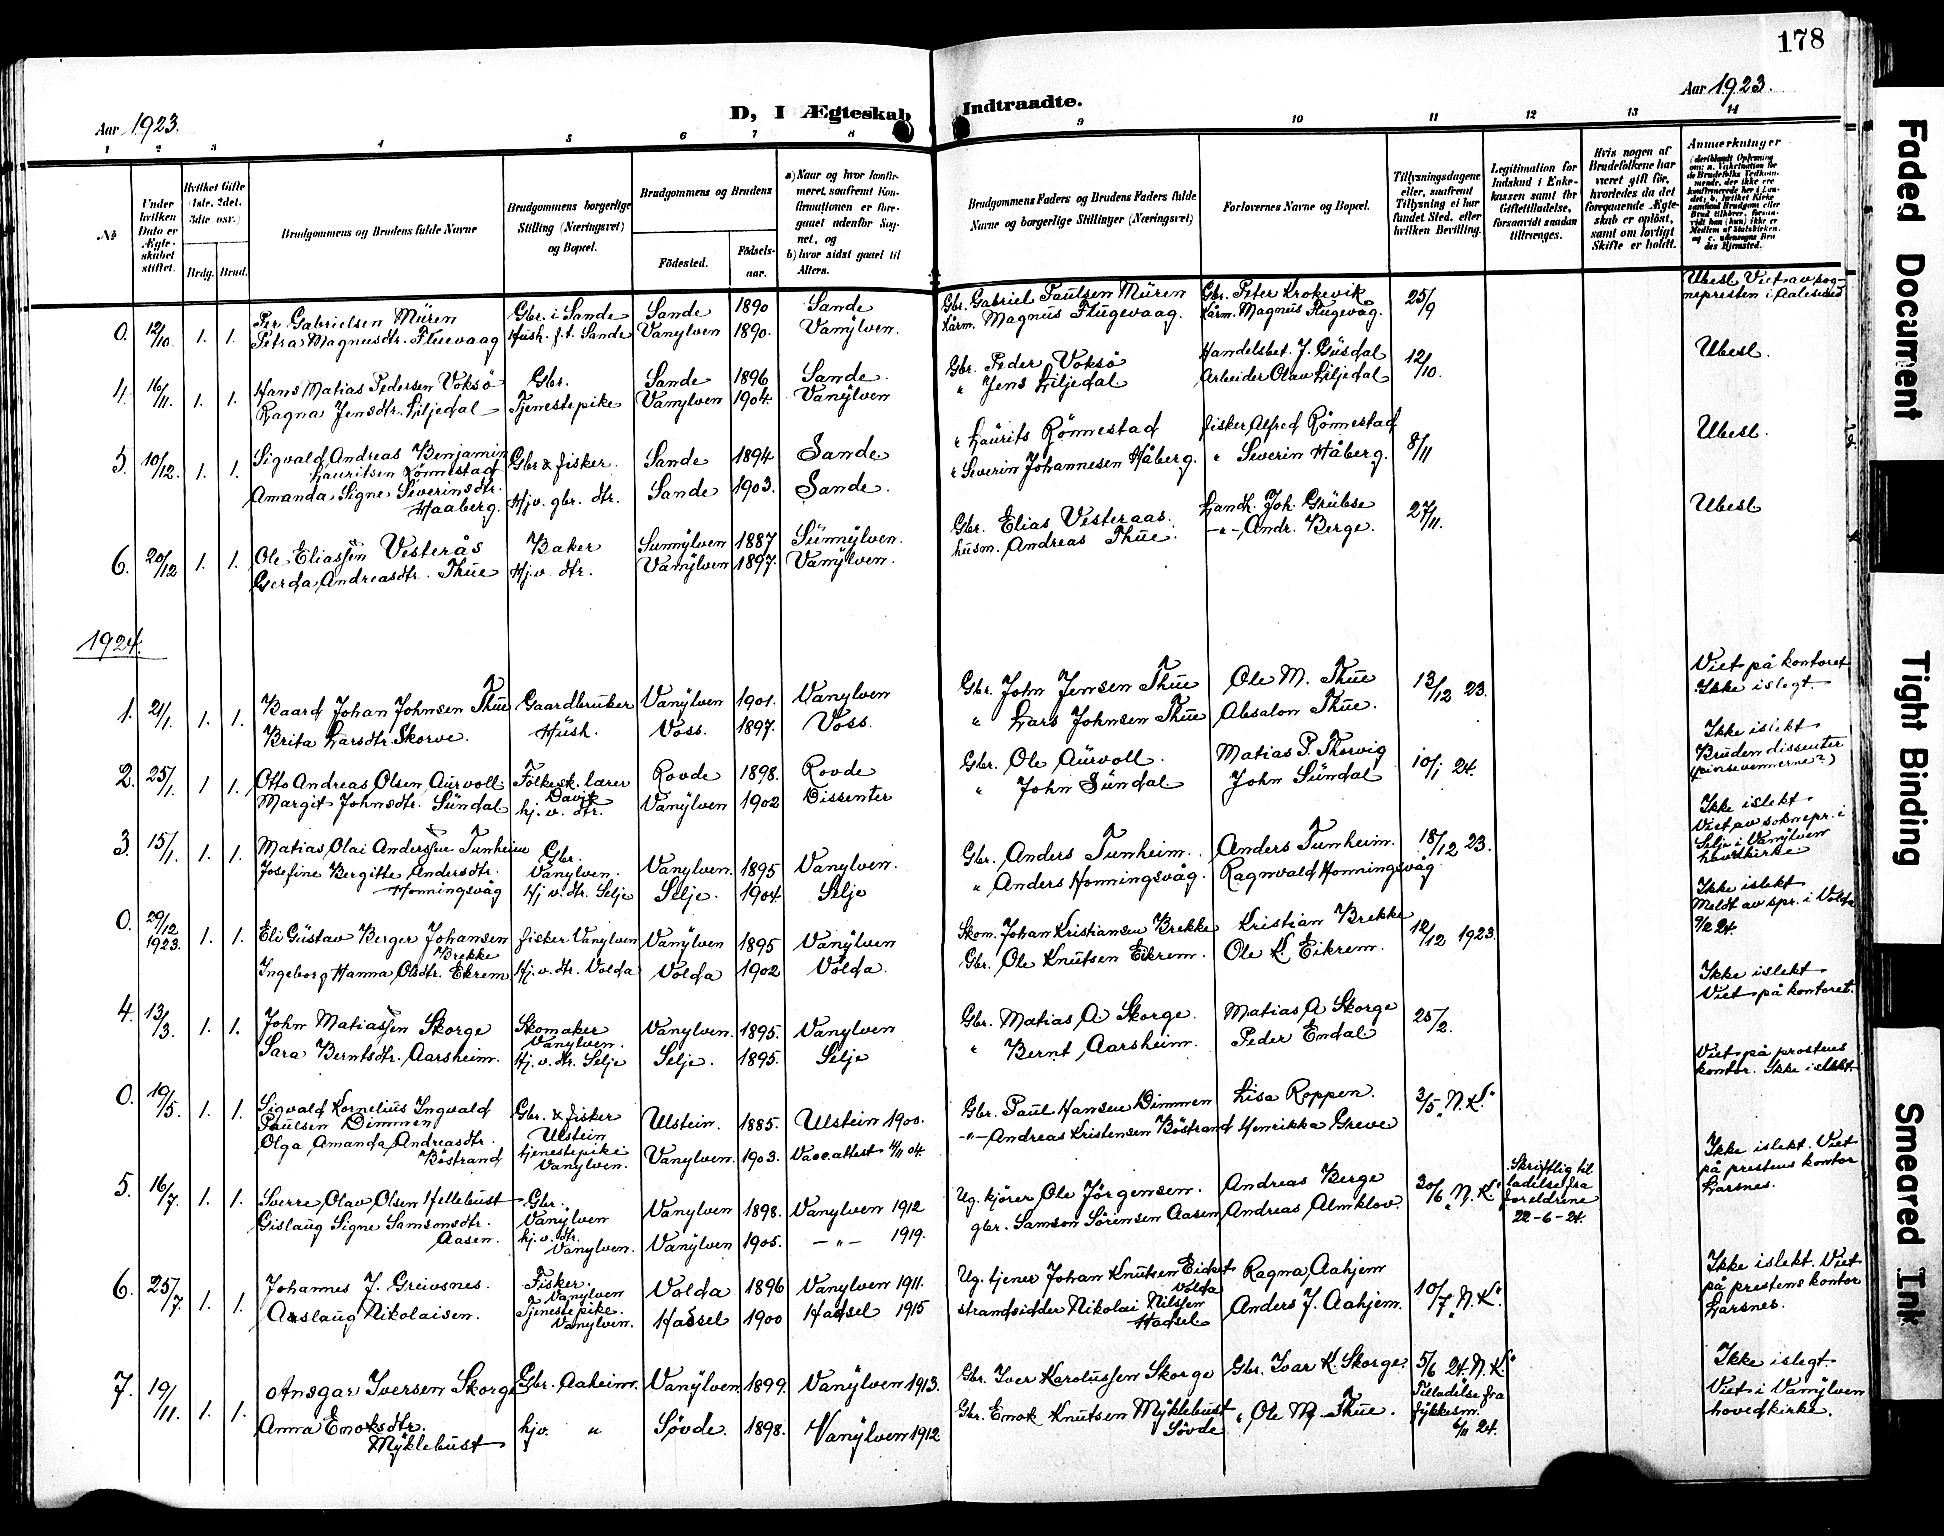 178
Aar 1923.
D, I Ægteskab Indtraadte.
Aar 1923.
1 2 3 4 5 6 7 8 9 10 11 12 13 14
No
Under hvilken Dato er Ægteskabet stiftet.
Hvilket Gifte (1ste, 2det, 3die osv.)
Brdg. Brud.
Brudgommens og Brudens fulde Navne
Brudgommens borgerlige Stilling (Næringsvei) og Bopæl.
Brudgommens og Brudens
Födested.
Födselsaar.
a) Naar og hvor konfirmeret, saafremt Konfirmationen er foregaaet udenfor Sognet, og
b) hvor sidst gaaet til Alters.
Brudgommens Faders og Brudens Faders fulde Navne og borgerlige Stillinger (Næringsvei)
Forlovernes Navne og Bopæl.
Tillysningsdagene eller, saafremt Tillysning ei har fundet Sted, efter hvilken Bevilling.
Legitimation for Indskud i Enkekassen samt for Giftettilladelse, forsaavidt saadan tiltrænges.
Hvis nogen af Brudefolkene har været gift før, hvorledes da det foregaaende Ægteskab er oplöst, samt om lovligt Skifte er holdt.
Anmærkninger
0. 12/10 1. 1. Per Gabrielsen Müren Gbr. i Sande Sande 1890 Sande Gbr. Gabriel Paulsen Müren Gbr. Peter Krokevik 25/9 Ubesl. Viet av sognepresten i Aalesund
Petra Magnusdtr. Fluevaag Hush. f.t. Sande Vanylven 1890. Vanylven. Kårm. Magnus Flugevaag. Kårm. Magnus Flugevåg.
4. 16/11. 1. 1. Hans Matias Pedersen Voksö Gbr. Sande 1896 Sande. Gbr. Peder Voksö Handelsbet. J. Gusdal 12/10. Ubesl.
Ragna Jensdtr. Liljedal Tjenestepike Vanylven 1904. Vanylven " Jens Liljedal Arbeider Olav Liljedal
5. 10/12. 1. 1. Sigvald Andreas Benjamin Lauritsen Rönnestad Gbr & fisker. Sande 1894 Sande " Laurits Rönnestad fisker Alfred Rönnestad 8/11 Ubesl.
Amanda Signe Severinsdtr. Haaberg. Hjv. gbr. dtr. Sande 1903. Sande. " Severin Johannesen Håberg. " Severin Håberg.
6. 20/12 1. 1. Ole Eliassen Vesterås Baker Sunnylven 1887 Sunnylven. Gbr. Elias Vesteraas. Landh. Joh. Grubse 27/11. Ubesl
Gerda Andreasdtr. Thue Hj.v. dtr. Vanylven 1897. Vanylven. husm. Andreas Thue. -"- Andr. Berge.
1924.
1. 21/1. 1. 1. Baard Johan Johnsen Thue Gaardbruker Vanylven 1901. Vanylven Gbr. John Jensen Thue Ole M. Thue 13/12 23. Viet på kontoret Ikke i slegt.
Brita Larsdtr. Skorve. Hush. Voss. 1897. Voss. " Lars Johnsen Thue Absalon Thue.
2. 25/1. 1 1. Otto Andreas Olsen Aurvoll Folkesk. lærer Davik Rovde 1898. Rovde Gbr. Ole Aurvoll. Matias P. Thorvig 10/1 24. Ikke i slekt Bruden dissenter
Margit Johnsdtr. Sundal hj. v. dtr. Vanylven 1902 Dissenter " John Sundal John Sundal
3. 15/1. 1. 1. Matias Olai Anderssen Tunheim Gbr. Vanylven. Vanylven. 1895 Vanylven. Gbr. Anders Tunheim. Anders Tunheim. 18/12 23. Ikke i slekt Viet av soknepr. i Selje i Vanylven hovedkirke.
Josefine Bergitte Andersdtr. Honningsvåg Hj v. dtr. Selje Selje. 1904. Selje " Anders Honningsvåg. Ragnvald Honningsvåg
0. 29/12 1923. 1. 1. Eli Gustav Berger Johansen Brekke fisker Vanylven Vanylven 1895 Vanylven Skom. Johan Kristiansen Brekke Kristian Brekke 12/12 1923. Ikke i slekt Meldt av spr. i Volda 9/2 24.
Ingeborg Hanna Olsdtr. Ekrem Hj. v. dtr. Volda Volda 1902 Volda. Gbr. Ole Knutsen Eikrem. Ole K. Eikrem.
4. 13/3. 1. 1. John Matiassen Skorge Skomaker Vanylven. Vanylven. 1895. Vanylven Gbr. Matias A Skorge. Matias A Skorge 25/2. Ikke i slekt Viet på kontoret.
Sara Berntsdtr. Aarsheim. Hj. v. dtr. Selje Selje. 1895. Selje " Bernt Aarsheim. Peder Endal
0. 19/5. 1. 1. Sigvald Kornelius Ingvald Paulsen Dimmen Gbr. & fisker Ulstein Ulstein. 1885. Ulstein 1900. Gbr. Paul Hansen Dimmen Lisa Roppen. 3/5 "N.K." Viet på prostens kontor. Ikke i slekt.
Olga Amanda Andreasdtr. Böstrand tjenestepike Vanylven. Vanylven. 1903. Vacc.attest 4/11 04. -"- Andreas Kristensen Böstrand Henrikka Greve
5. 16/7. 1. 1. Sverre Olav Olsen Hellebust Gbr. Vanylven Vanylven 1898. Vanylven 1912 Ug. kjörer Ole Jörgensen. Andreas Berge 30/6 "N.K." Skriftlig tilladelse fra foreldrene 22-6-24. Ikke i slekt. Viet på prestens kontor Larsnes.
Gislaug Signe Samsonsdtr. Aasen. hj.v. dtr. Vanylven. Vanylven 1905. -"- 1919. gbr. Samson Sörensen Aasen Andreas Almklov.
6. 25/7 1. 1. Johannes J. Greivsnes. Fisker. Vanylven Volda 1896 Vanylven 1911. Ug. tjener Johan Knutsen Eidset Volda Ragna Aahjem 10/7 "N.K." Ikke i slekt. Viet på prestens kontor Larsnes.
Aaslaug Nikolaisen. Tjenestepike. Vanylven. Hadsel 1900 Hadsel 1915 strandsidder Nikolai Nilssen Hadsel Anders J. Aahjem.
7. 19/11. 1. 1. Ansgar Iversen Skorge Gbr. Aaheim. Vanylven 1899. Vanylven 1913. Gbr. Iver Karolussen Skorge Gbr. Ivar K. Skorge. 5/6 24. N.K." Tilladelse fra fylkesm. 6/11 24. Ikke i slegt. Viet i Vanylven hovedkirke.
Anna Enoksdtr. Myklebust hjv. " Søvde. 1898. Vanylven 1912 Gbr. Enok Knutsen Myklebust Søvde " Ole M. Thue.
Faded Document
Tight Binding
Smeared Ink